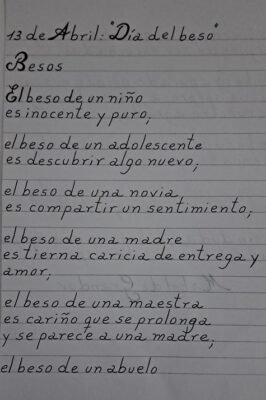 13 de Abril: "Día del beso"
Besos
El beso de un niño
es inocente y puro,
el beso de un adolescente
es descubrir algo nuevo,
el beso de una novia
es compartir un sentimiento,
el beso de una madre
es tierna caricia de entrega y
amor,
el beso de una maestra
es cariño que se prolonga
y se parece a una madre,
el beso de un abuelo